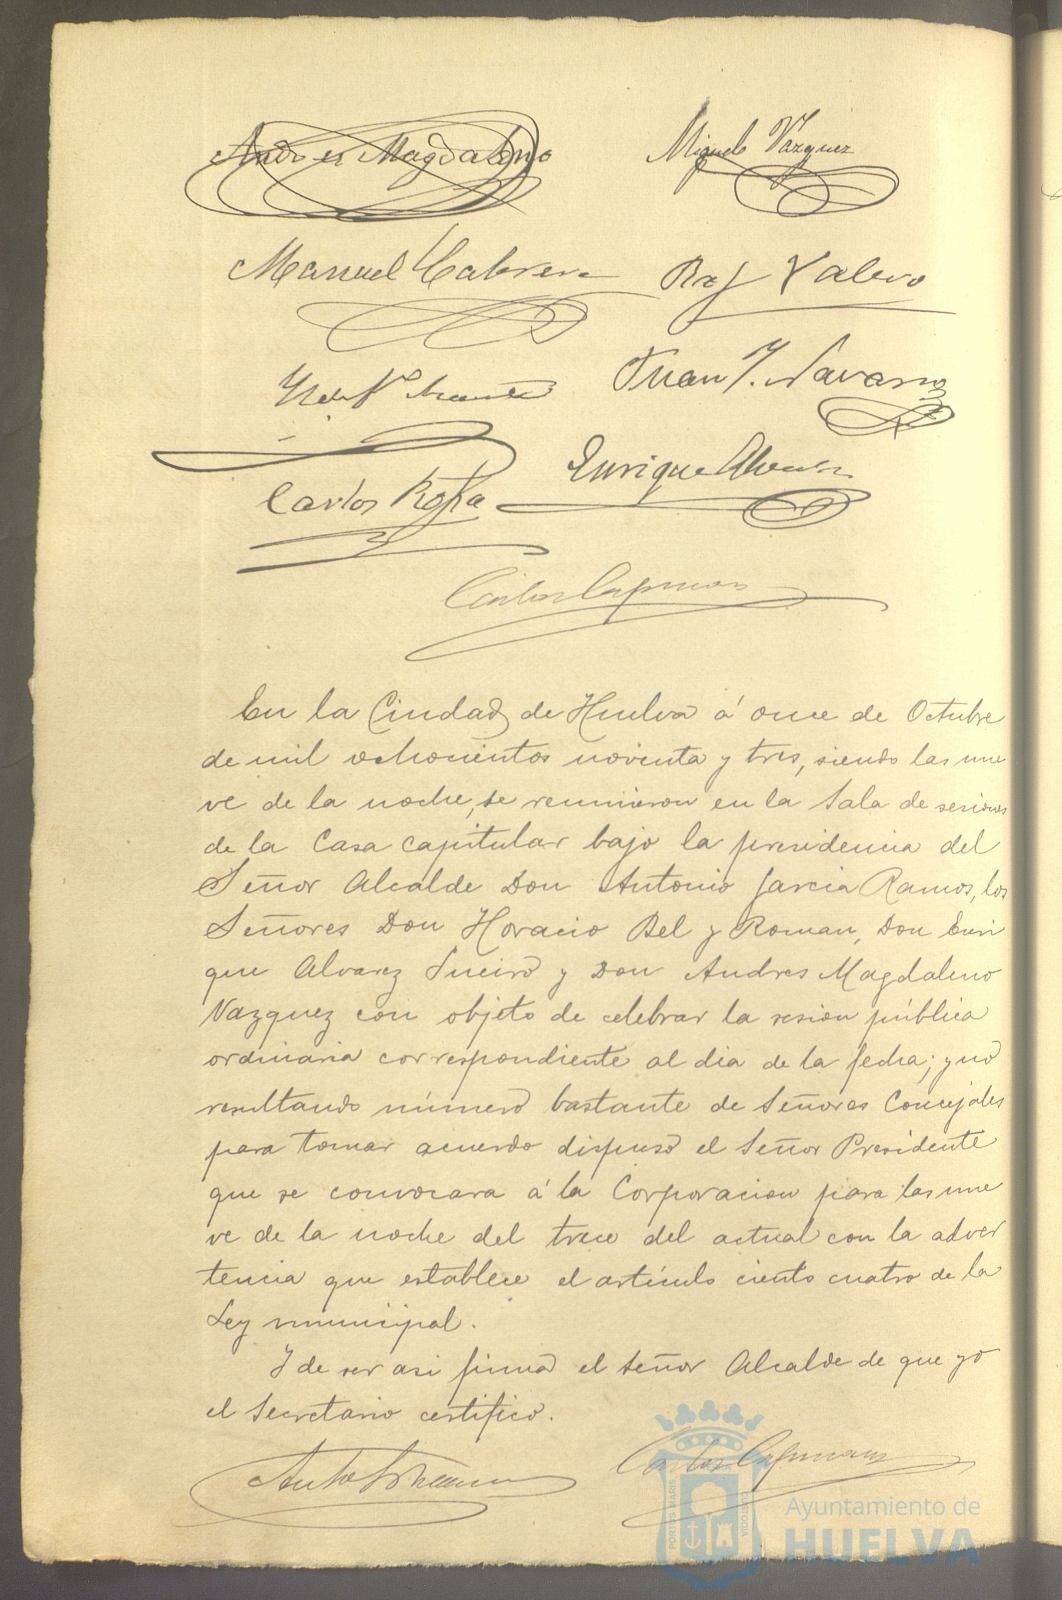 Andres Magdaleno
Miguel Vazquez
Manuel Cabrera
Raf Valero
Juan J. Navarro
Enrique Alvarez
Carlos
Carlos
En la Ciudad de Huelva á once de Octubre
de mil ochocientos noventa y tres, siendo las nue
ve de la noche, se reunieron en la Sala de sesiones
de la Casa capitular bajo la presidencia del
Señor Alcalde Don Antonio Garcia Ramos, los
Señores Don Horacio Bel y Roman, Don Enri
que Alvarez Sueiro y Don Andres Magdaleno
Vazquez con objeto de celebrar la sesion pública
ordinaria correspondiente al dia de la fecha; y no
resultando número bastante de Señores Concejales
para tomar acuerdo dispuso el Señor Presidente
que se convocara á la Corporacion para las nue
ve de la noche del trece del actual con la adver
tencia que establece el artículo ciento cuatro de la
Ley municipal.
Y de ser asi firma el Señor Alcalde de que yo
el Secretario certifico.
Carlos
PORTUS MARIS
CUSTODIA
Ayuntamiento de
HUELVA